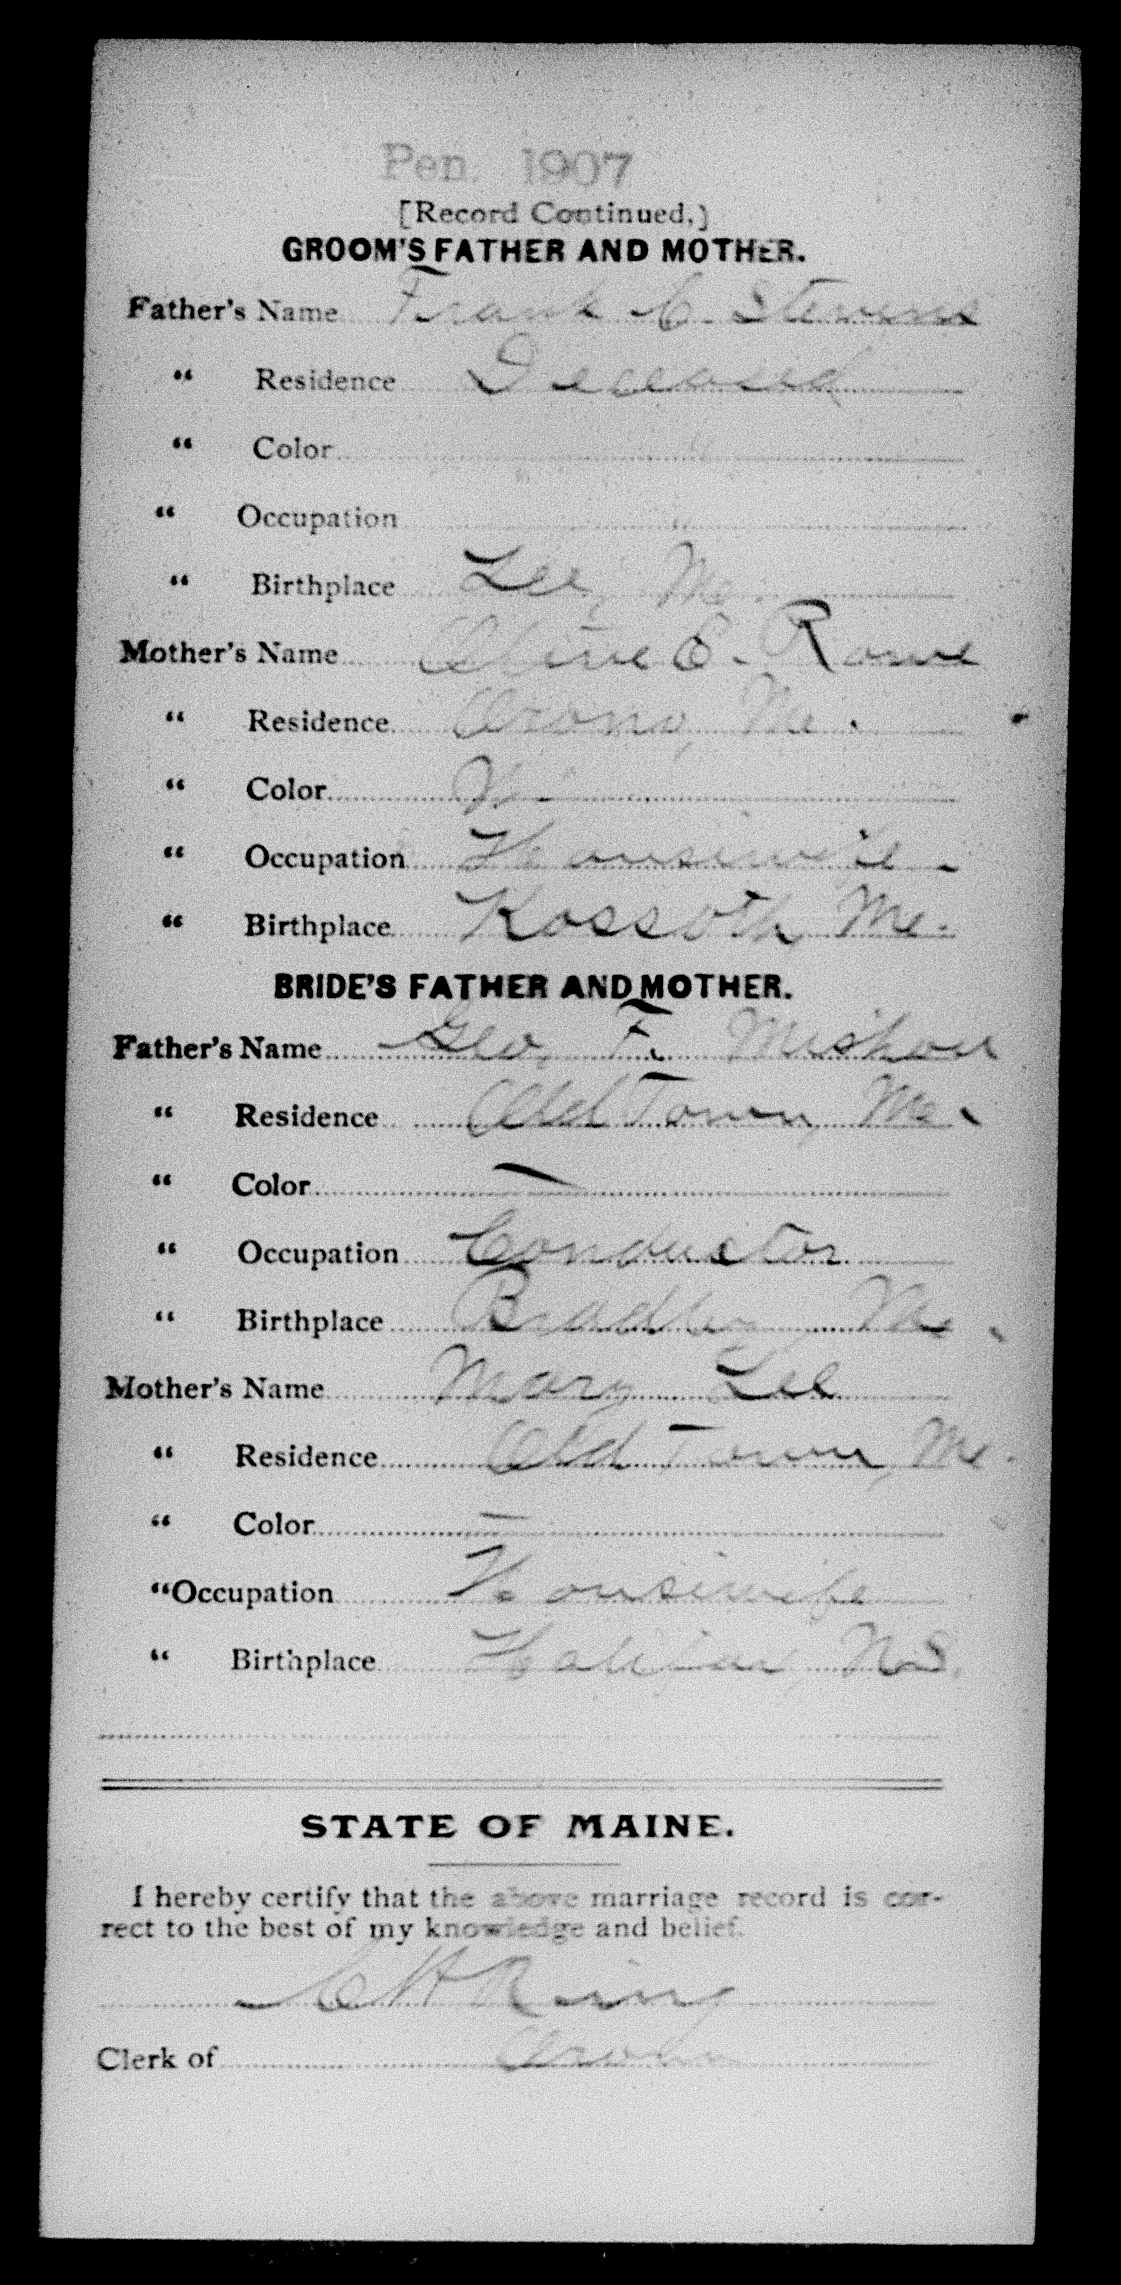 Pen. 1907
[Record Continued.]
GROOM'S FATHER AND MOTHER.
Father's Name Frank C. Stevens
" Residence Deceased
" Color
" Occupation "
" Birthplace Lee, Me.
Mother's Name Olive E. Rowe
" Residence Orono, Me.
" Color W.
" Occupation Housewife.
" Birthplace Kossoth, Me.
BRIDE'S FATHER AND MOTHER.
Father's Name Geo. F. Mishou
" Residence Old Town, Me.
" Color —
" Occupation Conductor.
" Birthplace Bradley, Me.
Mother's Name Mary Lee
" Residence Old Town, Me.
" Color —
" Occupation Housewife
" Birthplace Halifax, N.S.
STATE OF MAINE.
I hereby certify that the above marriage record is cor-
rect to the best of my knowledge and belief.
C H Ring
Clerk of Orono